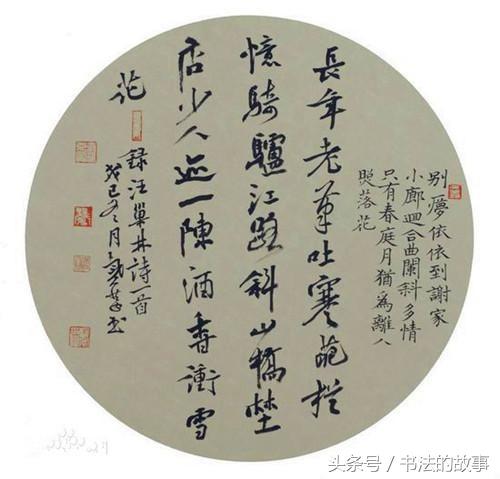 別夢依依到謝家
小廊回合曲闌斜多情
只有春庭月猶為離人
照落花
長年老筆吐寒葩猶
憶騎驢江路斜山橋埜
店少人迹一陳酒香衝雪
花
錄汪巢林詩首
癸巳冬月
头条号／书法的故事